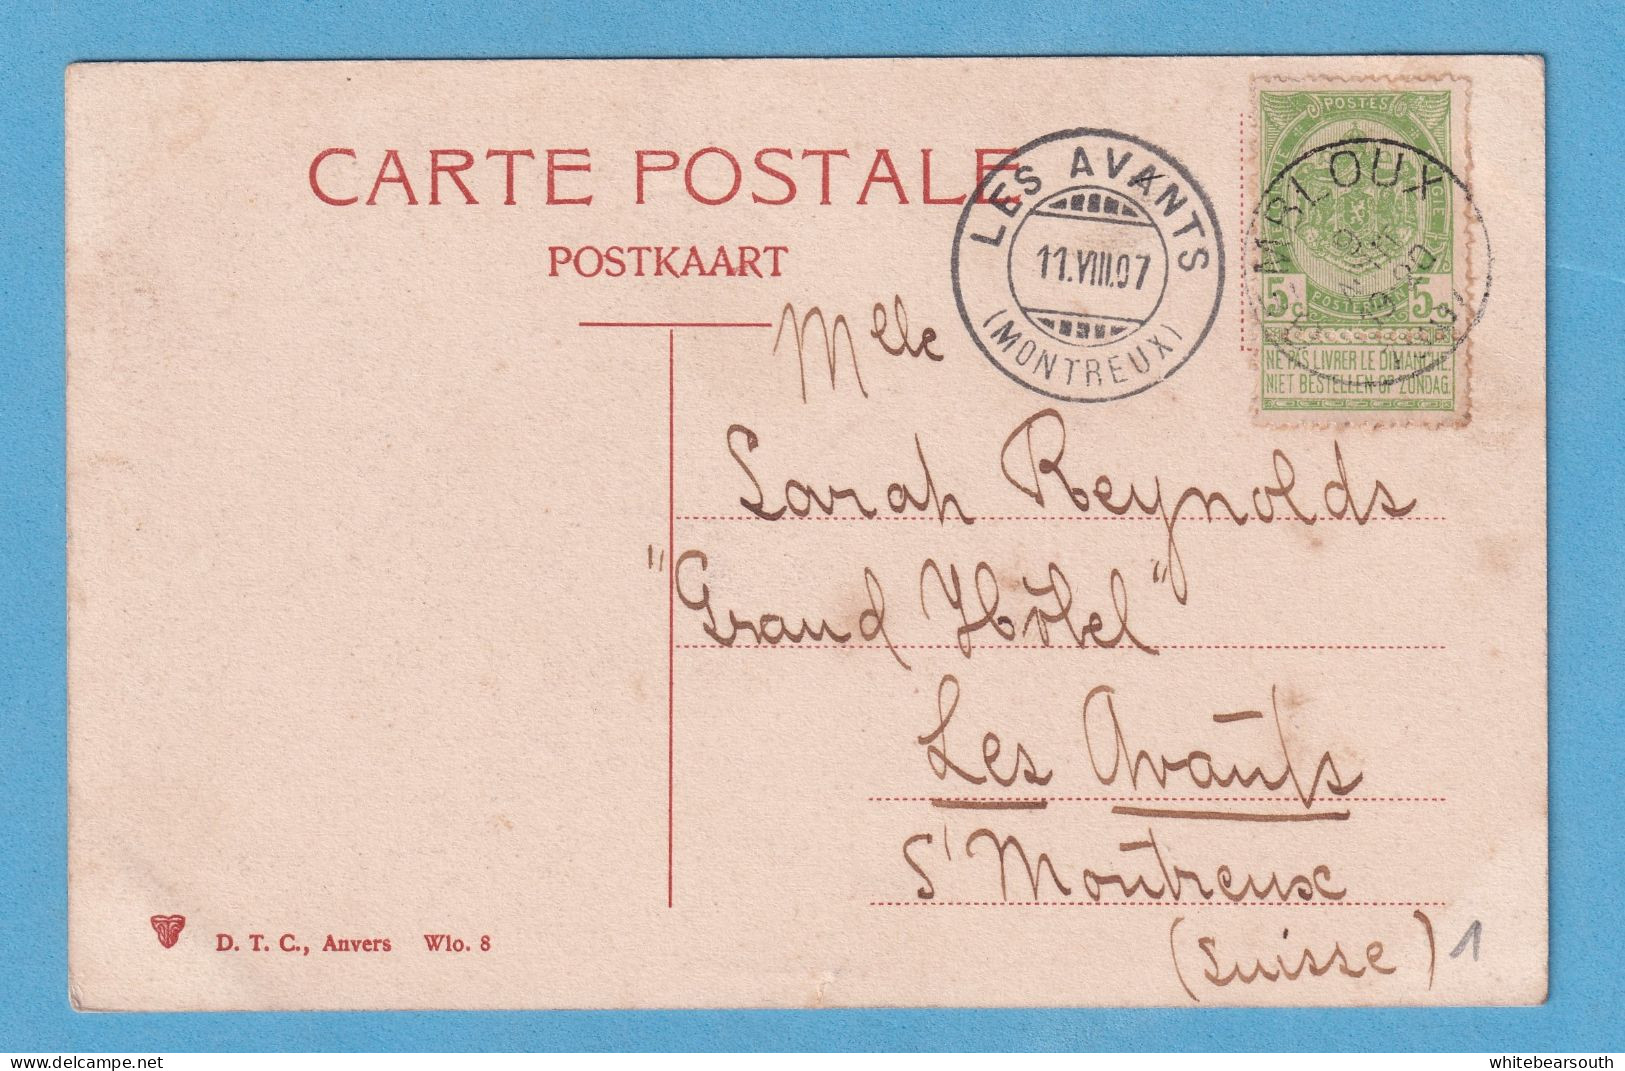 CARTE POSTALE
POSTKAART
LES AVANTS
11.VIII.07
(MONTREUX)
POSTES
5c 5c
POSTERIJEN
NE PAS LIVRER LE DIMANCHE
NIET BESTELLEN OP ZONDAG
GEMBLOUX
Mlle
Sarah Reynolds
"Grand Hôtel"
Les Avants
s/ Montreux
(Suisse)
1
D. T. C., Anvers Wlo. 8
whitebearsouth